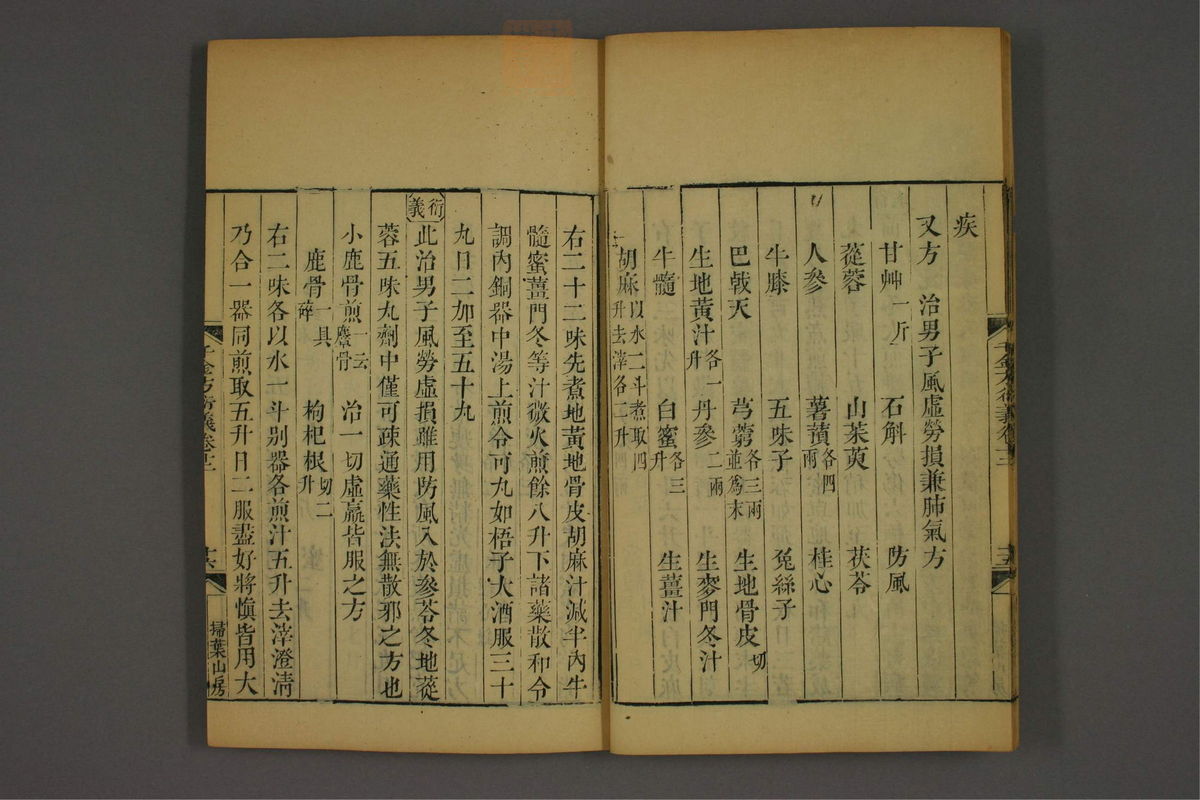 疾
又方　治男子風虛勞損兼肺氣方
甘艸一斤　石斛　防風
蓯蓉　山茱萸　茯苓
人參　薯蕷各四兩　桂心
牛膝　五味子　兔絲子
巴戟天　芎藭各三兩並爲末　生地骨皮切
生地黃汁各一升　丹參二兩　生麥門冬汁
牛髓　白蜜各三升　生薑汁
胡麻以水二斗煮取四升去滓各二升
右二十二味先煮地黃地骨皮胡麻汁減半內牛
髓蜜薑門冬等汁微火煎餘八升下諸藥散和令
調內銅器中湯上煎令可丸如梧子大酒服三十
丸日二加至五十丸
衍義此治男子風勞虛損雖用防風入於參苓冬地蓯
蓉五味丸劑中僅可疎通藥性決無散邪之方也
小鹿骨煎一云麞骨　治一切虛羸皆服之方
鹿骨一具碎　枸杞根切二升
右二味各以水一斗別器各煎汁五升去滓澄清
乃合一器同煎取五升日二服盡好將慎皆用大
千金方衍義卷十二
十六
掃葉山房